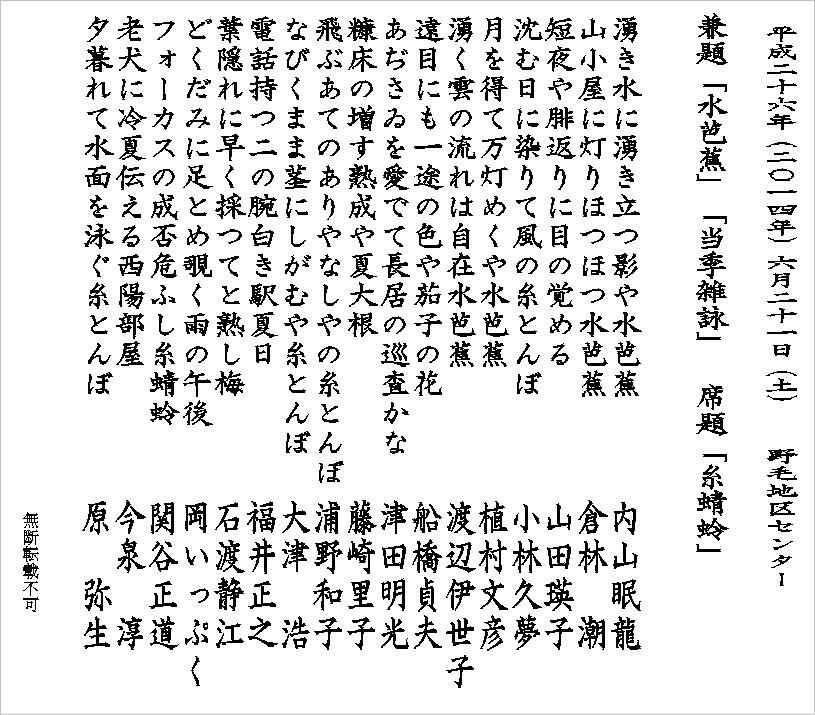 平成二十六年(二〇一四年)六月二十一日(土) 野毛地区センター
兼題「水芭蕉」「当季雑詠」 席題「糸蜻蛉」
湧き水に湧き立つ影や水芭蕉 内山眠龍
山小屋に灯りほつほつ水芭蕉 倉林 潮
短夜や腓返りに目の覚める 山田瑛子
沈む日に染りて風の糸とんぼ 小林久夢
月を得て万灯めくや水芭蕉 植村文彦
湧く雲の流れは自在水芭蕉 渡辺伊世子
遠目にも一途の色や茄子の花 船橋貞夫
あぢさゐを愛でて長居の巡査かな 津田明光
糠床の増す熟成や夏大根 藤崎里子
飛ぶあてのありやなしやの糸とんぼ 浦野和子
なびくまま茎にしがむや糸とんぼ 大津 浩
電話持つ二の腕白き駅夏日 福井正之
葉隠れに早く採つてと熟し梅 石渡静江
どくだみに足とめ覗く雨の午後 岡いっぷく
フォーカスの成否危ふし糸蜻蛉 関谷正道
老犬に冷夏伝える西陽部屋 今泉 淳
夕暮れて水面を泳ぐ糸とんぼ 原 弥生
無断転載不可